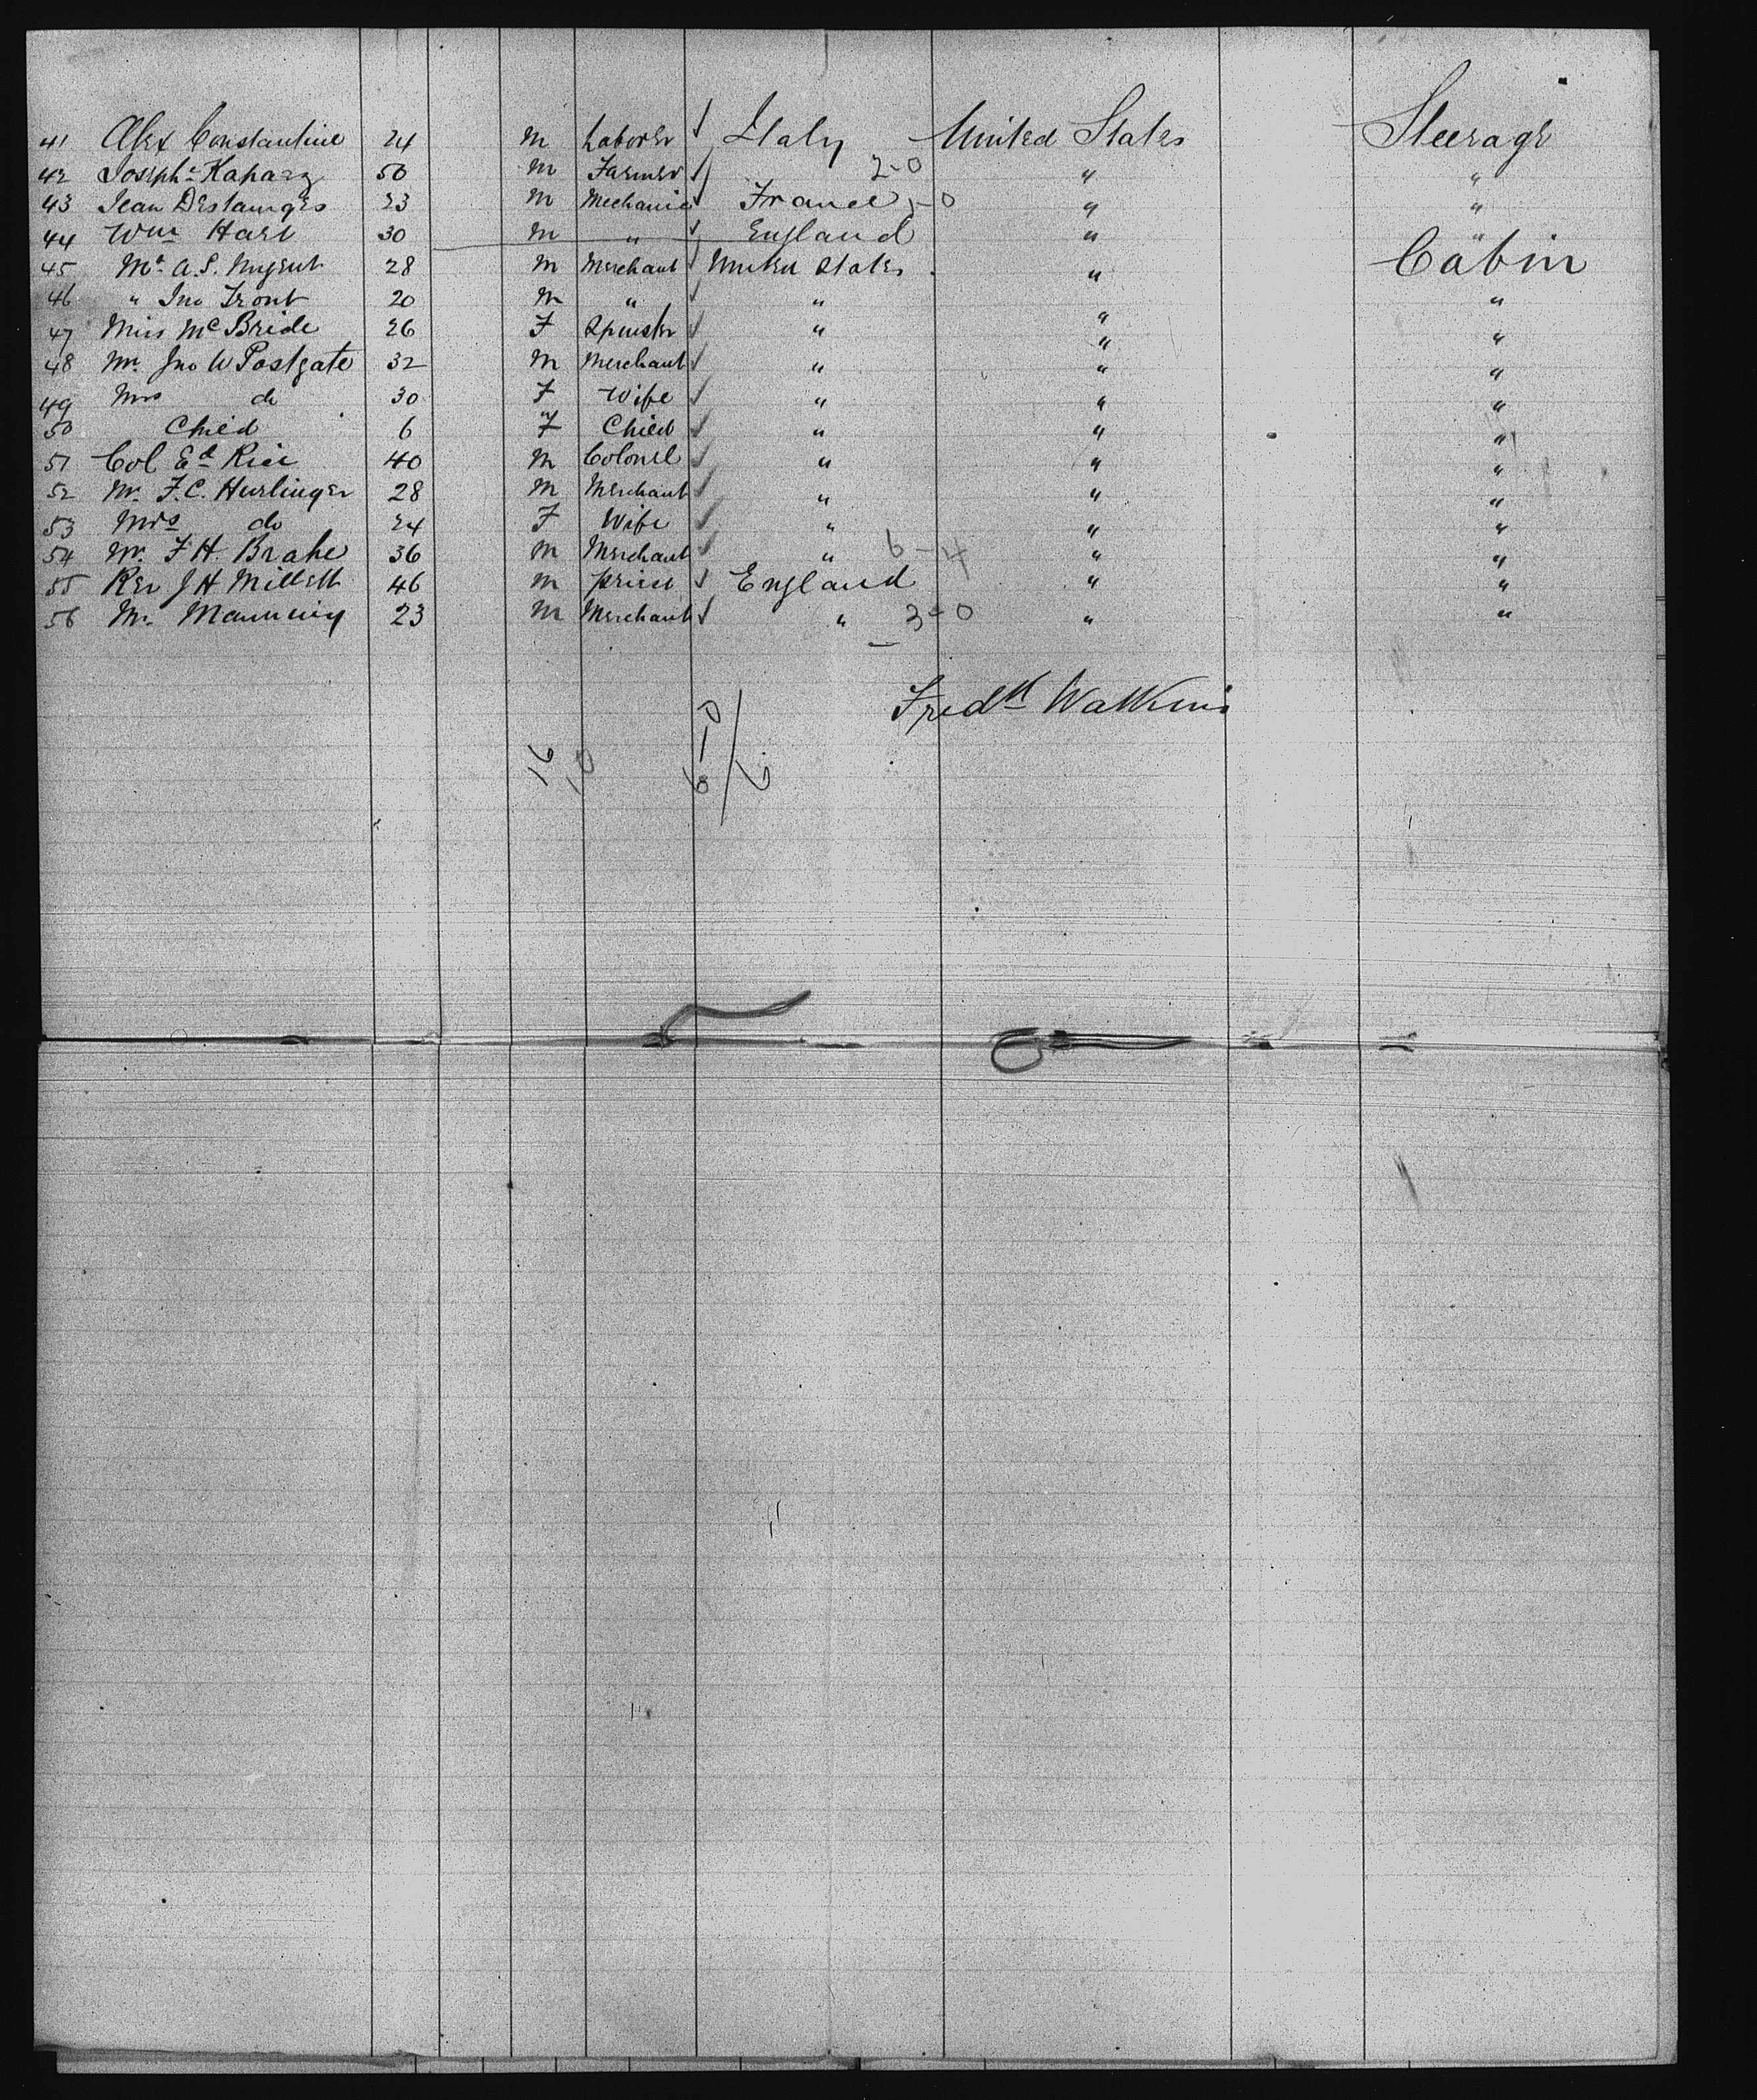 41 Alex Constantine 24 m Laborer Italy United States Steerage
42 Joseph Kaparz 50 m Farmer 2-0 " "
43 Jean Destamges 23 m Mechanic France "  "
44 Wm Hart 30 m " England " "
45 Mr A.S. Nugent 28 m Merchant United States " Cabin
46 " Jno Front 20 m " " " "
47 Miss McBride 26 F Spinster " " "
48 Mr. Jno W Postgate 32 m Merchant " " "
49 Mrs do 30 F Wife " " "
50 Child 6 F Child " " "
51 Col Ed Rice 40 m Colonel " " "
52 Mr. F.C. Hurlinger 28 m Merchant " " "
53 Mrs do 24 F Wife " " "
54 Mr. F H. Brahe 36 m Merchant " 6-4 " "
55 Rev J H Millett 46 m priest England " "
56 Mr. Manning 23 m Merchant " 3-0 " "
Fredk Watkins
16
10
6-0
6